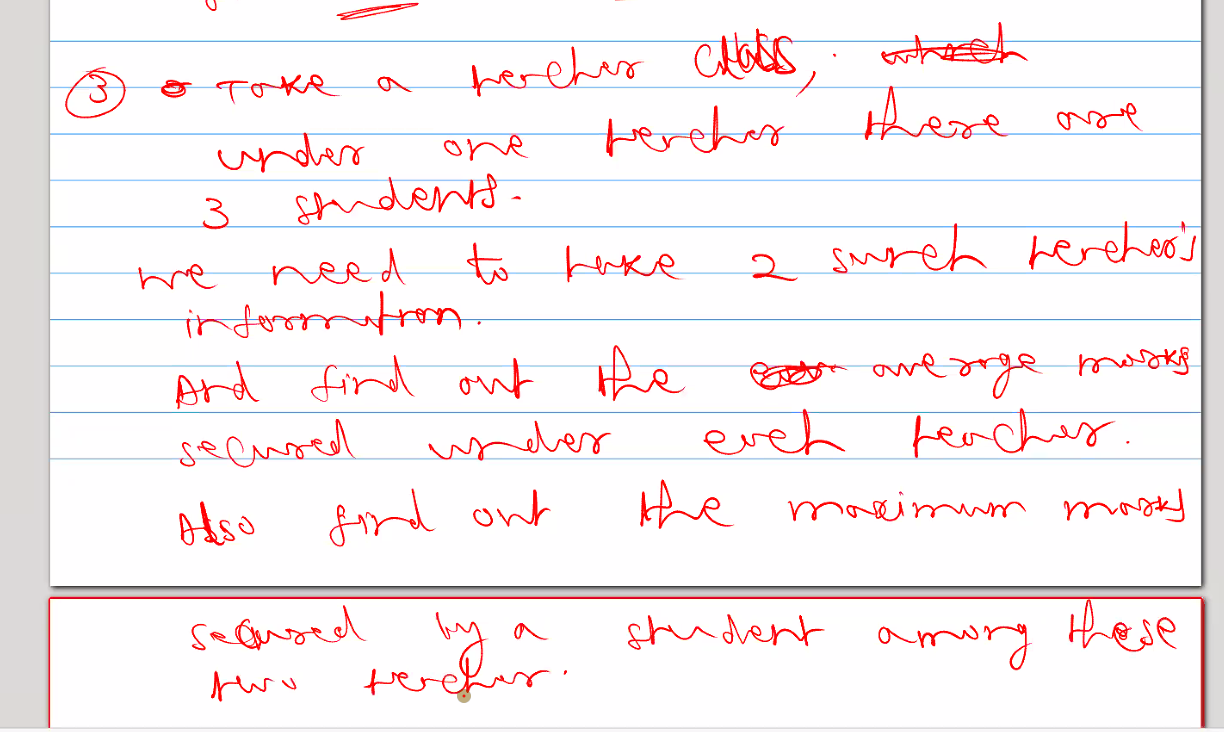 ③ Take a teacher class,
under one teacher there are
3 students.
we need to take 2 such teacher's
information.
And find out the average marks
secured under each teacher.
Also find out the maximum marks
secured by a student among these
two teacher.